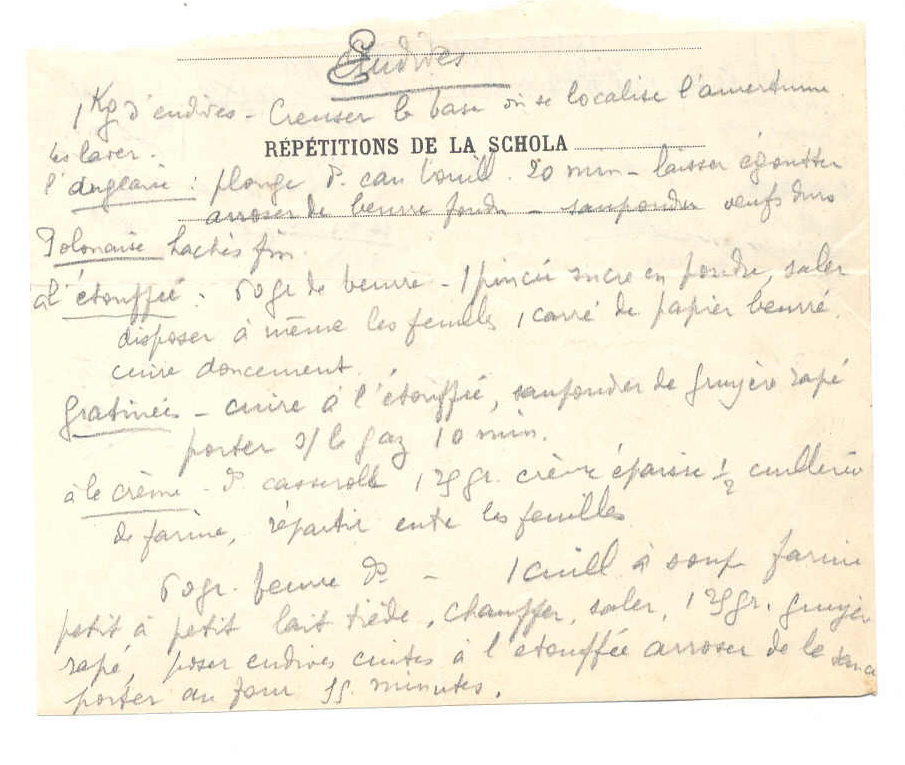 Endives
1 Kg d'endives - Creuser la base où se localise l'amertume
les laver.
RÉPÉTITIONS DE LA SCHOLA
l'anglaise : plonge d. eau bouill. 20 min - laisser égoutter
arroser de beurre fondu - saupoudrer oeufs durs
Polonaise hachés fin.
à l'étouffée : 60 gr de beurre - 1 pincée sucre en poudre, saler
disposer à même les feuilles 1 carré de papier beurré.
cuire doucement.
Gratinées - cuire à l'étouffée, saupoudrer de gruyère rapé
porter s/ le gaz 10 min.
à la crème - d. casserole 125 gr. crème épaisse 1/2 cuillerée
de farine, répartir entre les feuilles
60 gr. beurre d - 1 cuill à soup farine
petit à petit lait tiède, chauffer, saler, 125 gr. gruyère
rapé, poser endives cuites à l'étouffée arroser de la sauce
porter au four 15 minutes.